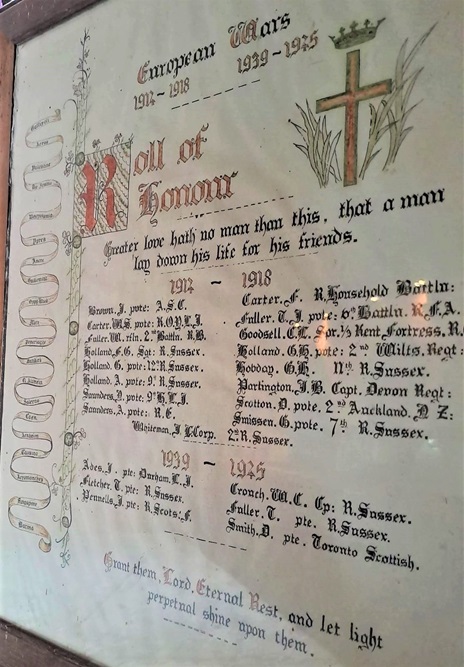 European Wars
1914 - 1918 1939 - 1945
Roll of
Honour
Greater love hath no man than this, that a man
lay down his life for his friends.
1914 - 1918
Brown, J. pvte: A.S.C.
Carter, W.S. pvte: K.O.Y.L.I.
Fuller, W. rfn. 2nd Battln. R.B.
Holland, F.G. Sgt: R. Sussex.
Holland, G. pvte: 12th R. Sussex.
Holland, A. pvte: 9th R. Sussex.
Saunders, D. pvte: 9th H.L.I.
Saunders, A. pvte: R.E.
Whiteman, J. L/Corp. 2nd R. Sussex.
Carter, F. R. Household Battln:
Fuller, T. J. pvte: 6th Battln. R.F.A.
Goodsell, C.L. Spr. 1/3 Kent Fortress, R.
Holland, G.H. pvte: 2nd Wilts. Regt:
Hobday, G.H. 11th R. Sussex.
Partington, J.B. Capt. Devon Regt:
Scotton, D. pvte. 2nd Auckland, N Z:
Smissen, G. pvte. 7th R. Sussex.
1939 - 1945
Ades, J. pte: Durham L.I.
Fletcher, T. pte: R. Sussex.
Pennells, J. pte: R. Scots: F.
Crouch, W.C. Cp: R. Sussex.
Fuller, T. pte. R. Sussex.
Smith, D. pte. Toronto Scottish.
Grant them, Lord, Eternal Rest, and let light
perpetual shine upon them.
Ypres
Singapore
Burma